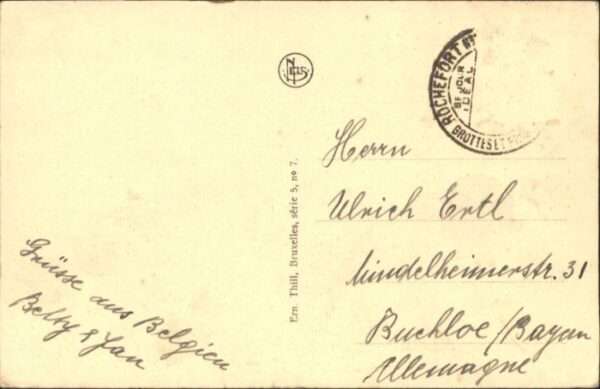 NELS
ROCHEFORT
SEJOUR
IDEAL
GROTTES ET
Ern. Thill, Bruxelles, série 5, no 7.
Herrn
Ulrich Ertl
Mindelheimerstr. 31
Buchloe/Bayern
Allemagne
Grüsse aus Belgien
Betty & Jan